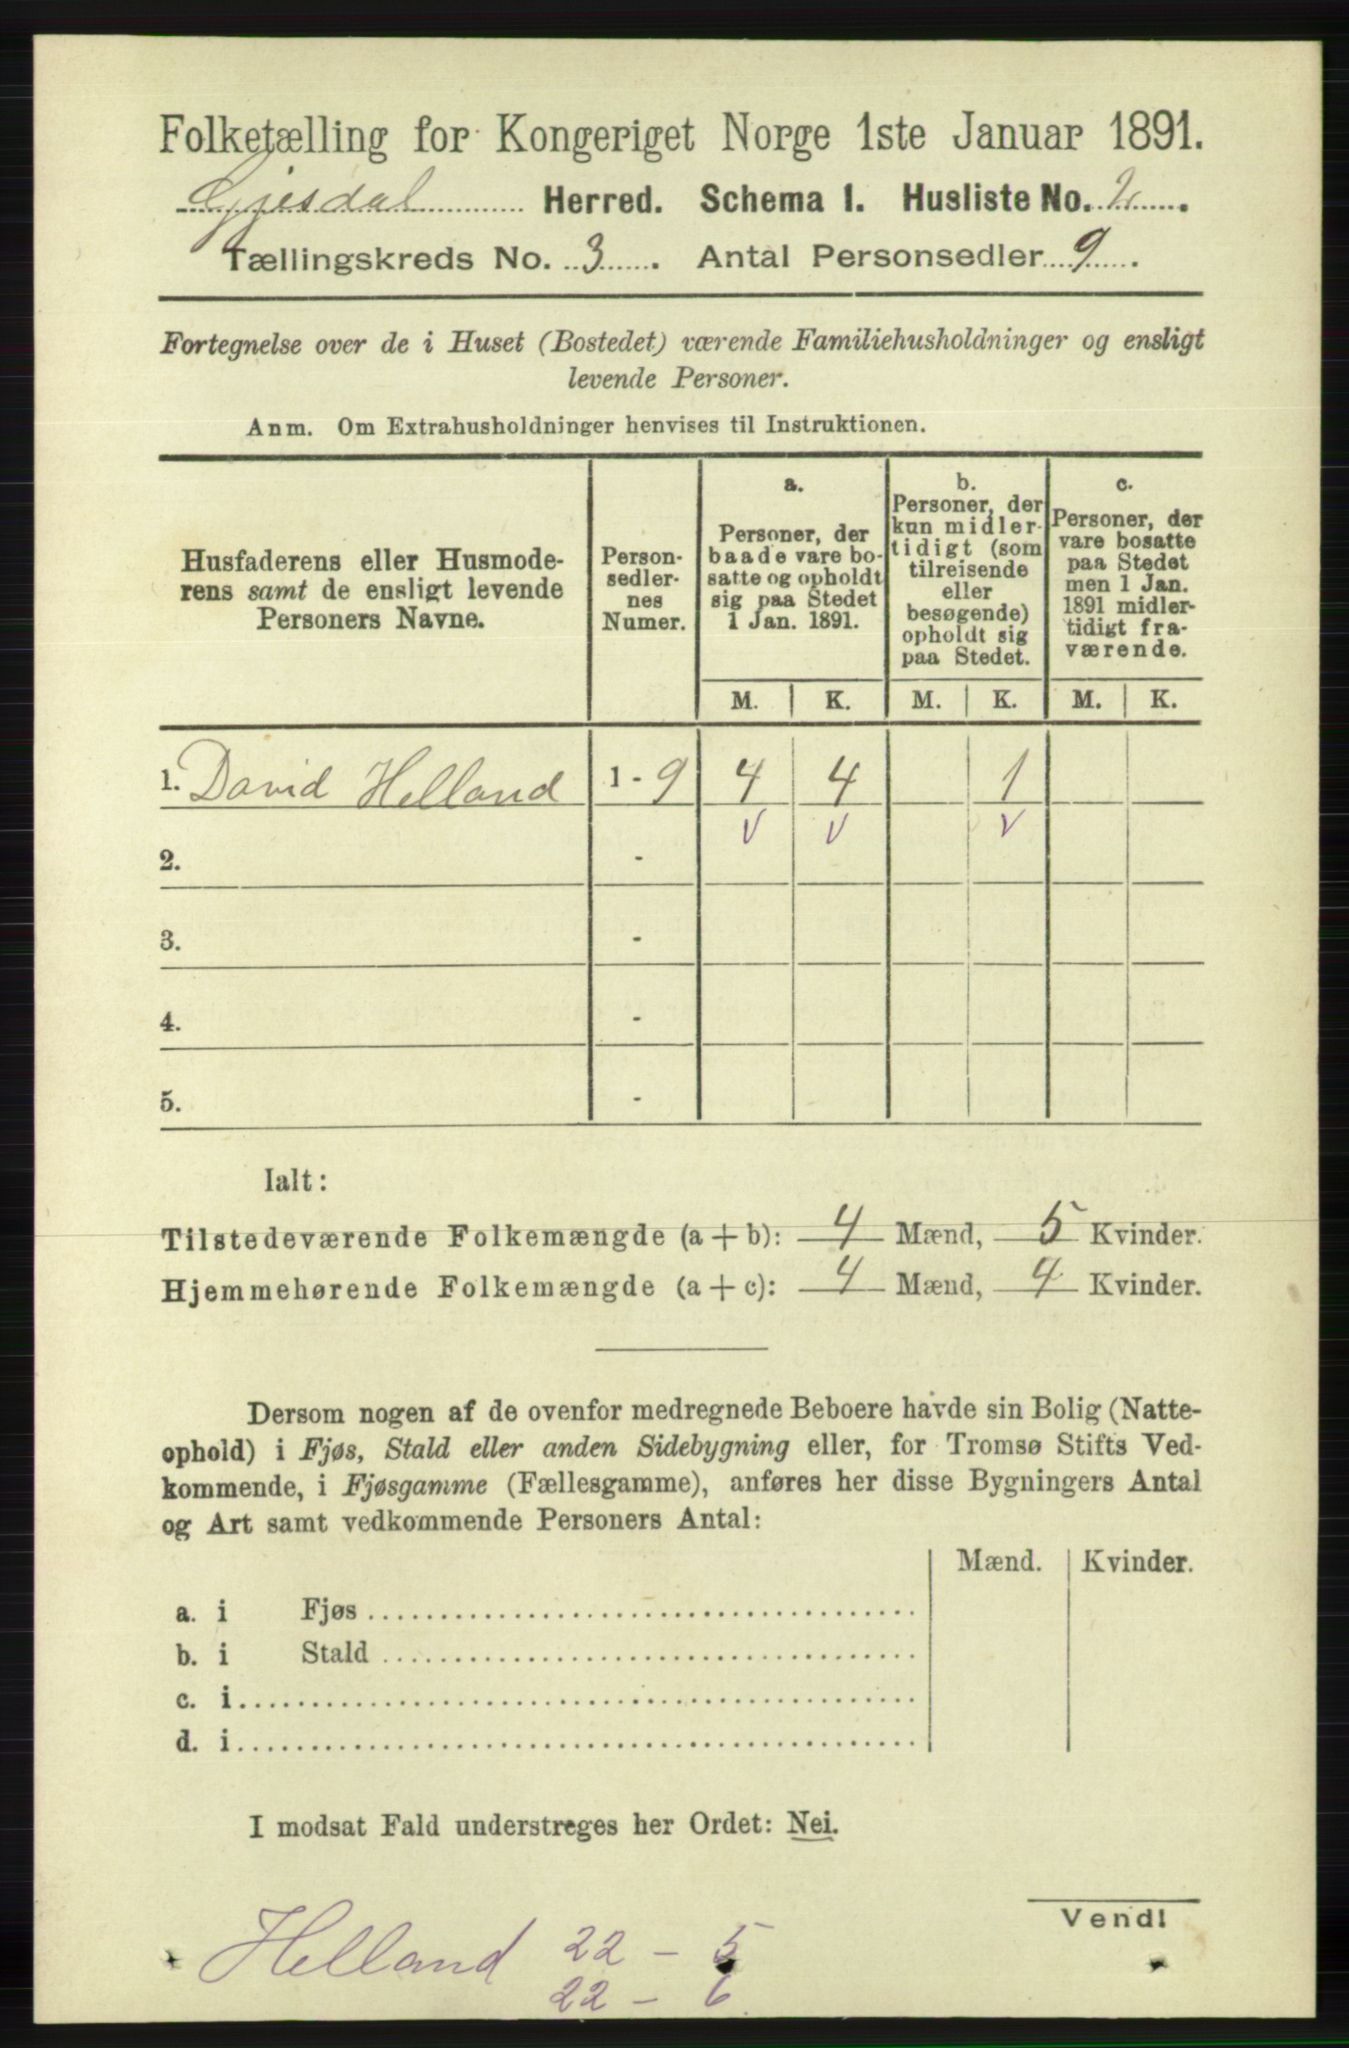 Folketælling for Kongeriget Norge 1ste Januar 1891.
Gjesdal Herred. Schema 1. Husliste No. 2.
Tællingskreds No. 3. Antal Personsedler 9.
Fortegnelse over de i Huset (Bostedet) værende Familiehusholdninger og ensligt
levende Personer.
Anm. Om Extrahusholdninger henvises til Instruktionen.
Husfaderens eller Husmode-
rens samt de ensligt levende
Personers Navne.
Person-
sedler-
nes
Numer.
a.
Personer, der
baade vare bo-
satte og opholdt
sig paa Stedet
1 Jan. 1891.
b.
Personer, der
kun midler-
tidigt (som
tilreisende
eller
besøgende)
opholdt sig
paa Stedet.
c.
Personer, der
vare bosatte
paa Stedet
men 1 Jan.
1891 midler-
tidigt fra-
værende.
M. K. M. K. M. K.
1. David Helland 1 - 9 4 4 1
v v v
2. -
3. -
4. -
5. -
Ialt:
Tilstedeværende Folkemængde (a + b): 4 Mænd, 5 Kvinder.
Hjemmehørende Folkemængde (a + c): 4 Mænd, 4 Kvinder.
Dersom nogen af de ovenfor medregnede Beboere havde sin Bolig (Natte-
ophold) i Fjøs, Stald eller anden Sidebygning eller, for Tromsø Stifts Ved-
kommende, i Fjøsgamme (Fællesgamme), anføres her disse Bygningers Antal
og Art samt vedkommende Personers Antal:
Mænd. Kvinder.
a. i Fjøs
b. i Stald
c. i
d. i
I modsat Fald understreges her Ordet: Nei.
Vend!
Helland 22 - 5
22 - 6